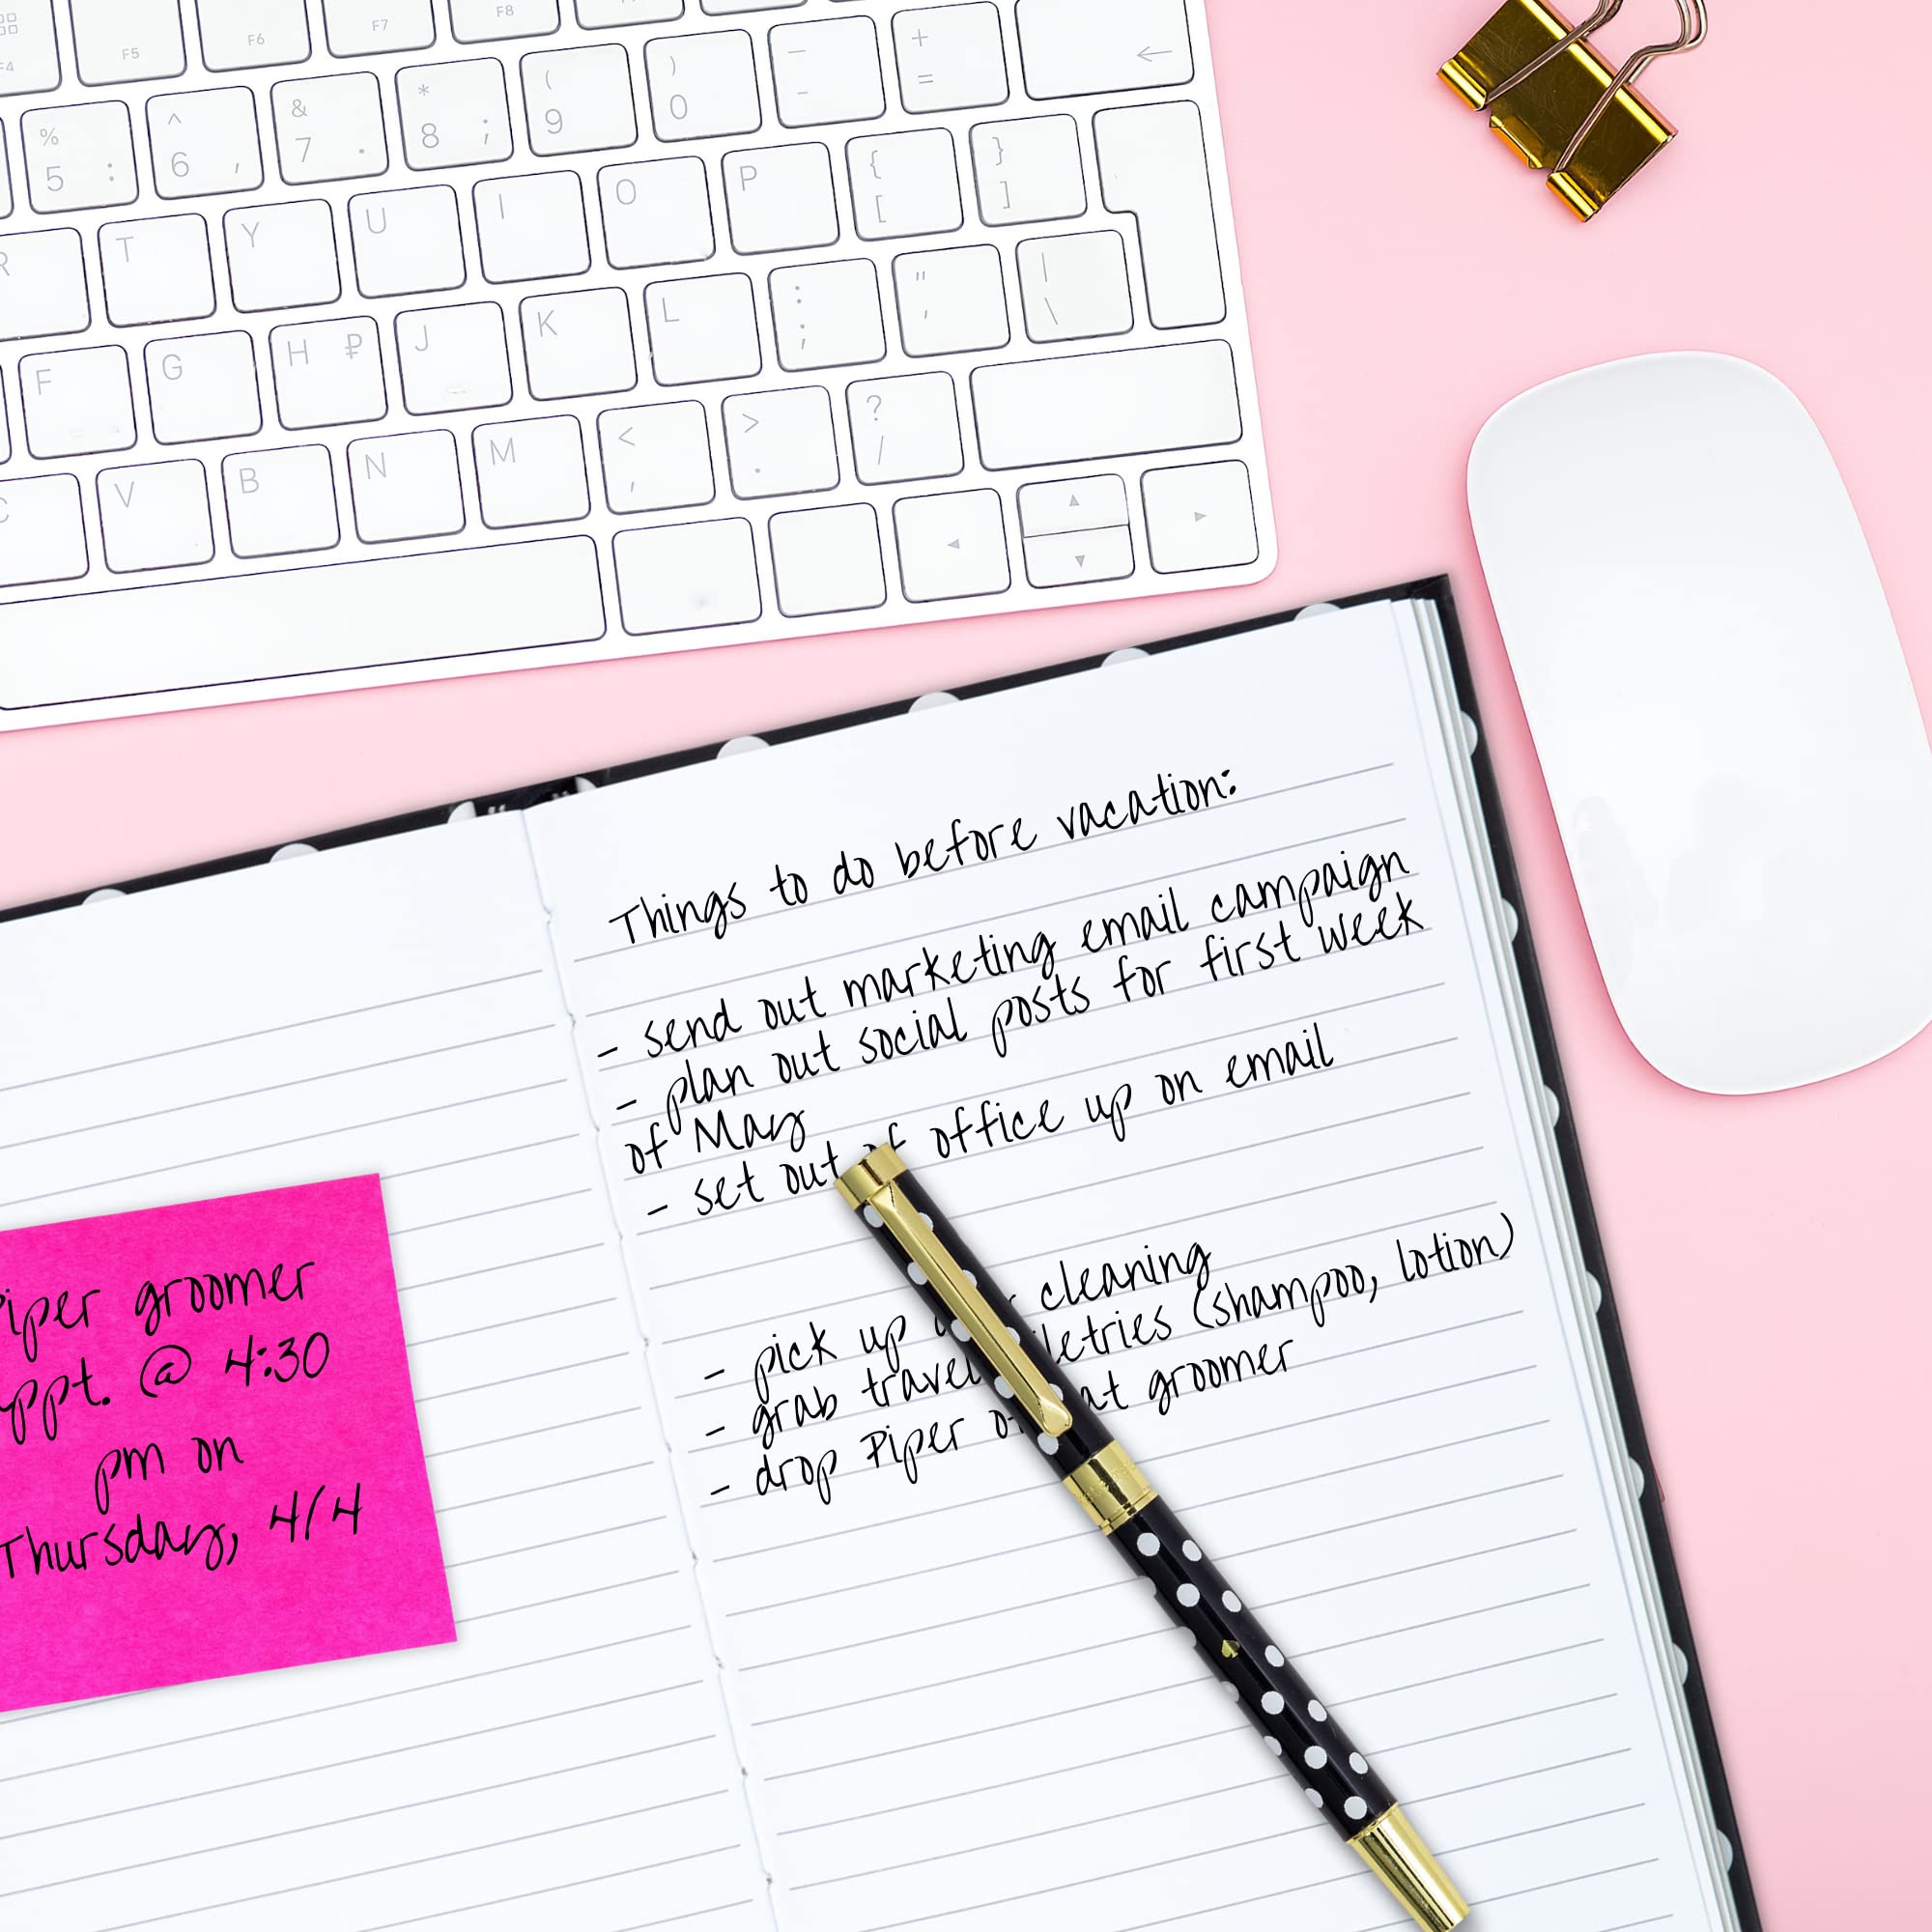 F4 F5 F6 F7 F8
% 5 : ^ 6 , & 7 . * 8 ; ( 9 ) 0 — - + = ←
R T Y U I O P { [ } ]
F G H ₽ J K L : ; " ' | \
C V B N M < , > . ? /
◄ ▲ ▼ ►
Things to do before vacation:
- send out marketing email campaign
- plan out social posts for first week
of May
- set out of office up on email
- pick up cleaning
- grab travel iletries (shampoo, lotion)
- drop Piper o at groomer
iper groomer
ppt. @ 4:30
pm on
Thursday, 4/4